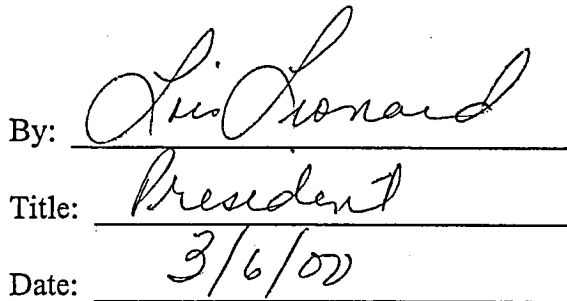 By: Lois Leonard
Title: President
Date: 3/6/00